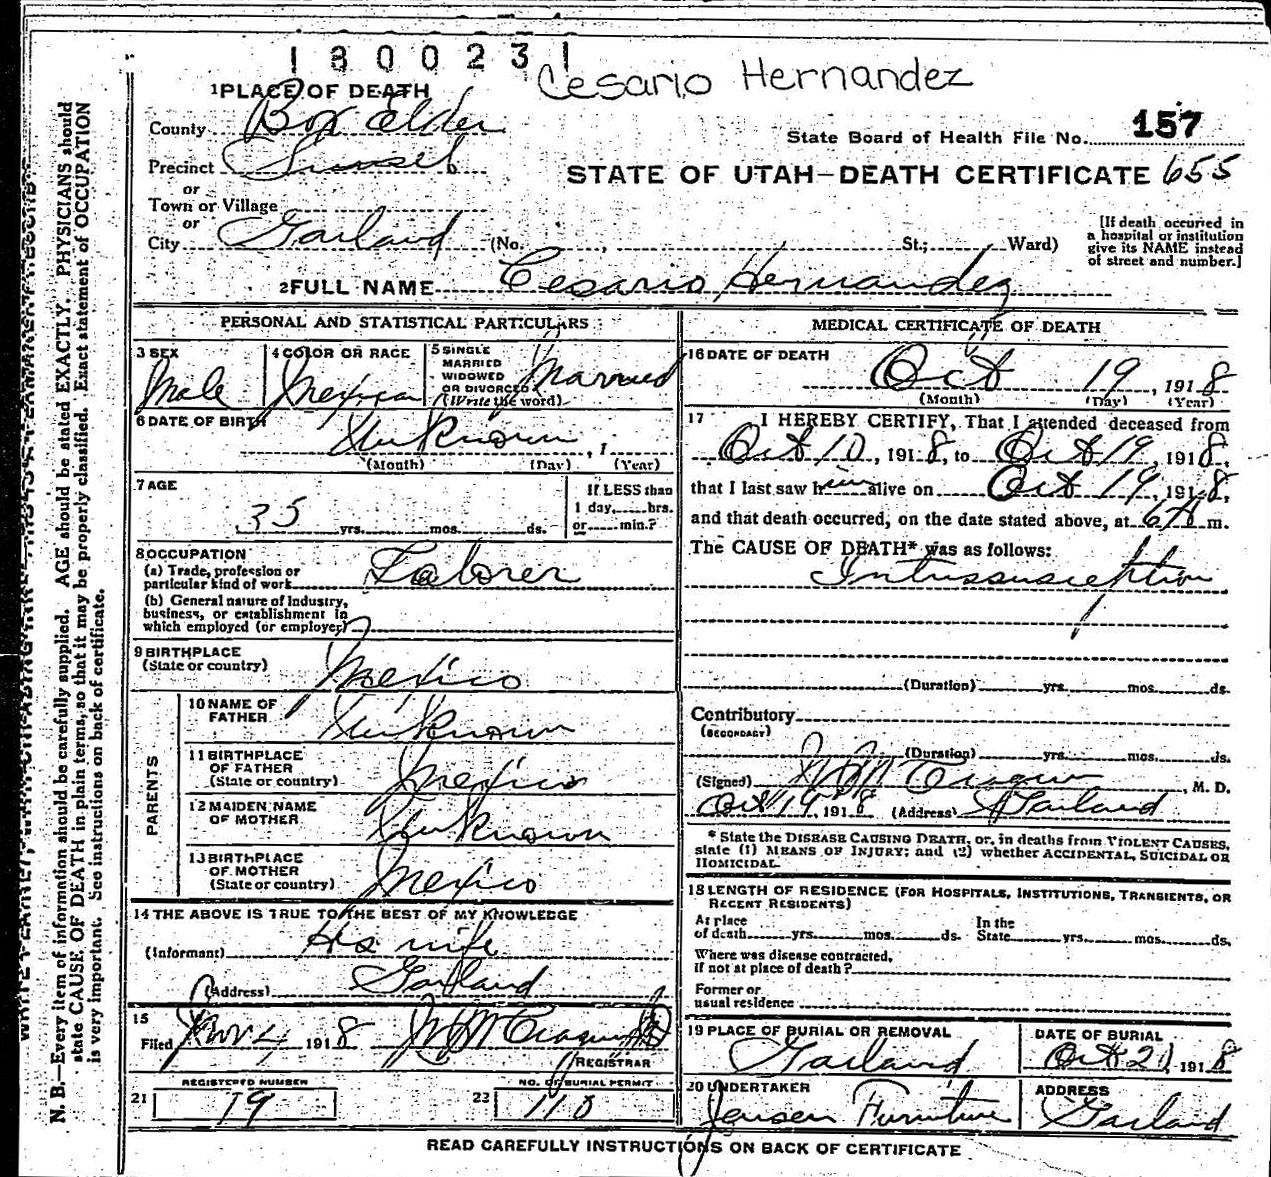 1800231
Cesario Hernandez
1 PLACE OF DEATH
County Box Elder
State Board of Health File No. 157
Precinct Sunset
STATE OF UTAH—DEATH CERTIFICATE 655
or
Town or Village
or
City Garland (No. , St.; Ward)
[If death occurred in a hospital or institution give its NAME instead of street and number.]
2 FULL NAME Cesario Hernandez
PERSONAL AND STATISTICAL PARTICULARS
3 SEX
Male
4 COLOR OR RACE
Mexican
5 SINGLE MARRIED WIDOWED OR DIVORCED (Write the word)
Married
6 DATE OF BIRTH
Unknown , 1
(Month) (Day) (Year)
7 AGE
35 yrs. mos. ds.
If LESS than
1 day, hrs.
or min.?
8 OCCUPATION
(a) Trade, profession or
particular kind of work Laborer
(b) General nature of industry,
business, or establishment in
which employed (or employer)
9 BIRTHPLACE
(State or country) Mexico
PARENTS
10 NAME OF
FATHER Unknown
11 BIRTHPLACE
OF FATHER
(State or country) Mexico
12 MAIDEN NAME
OF MOTHER Unknown
13 BIRTHPLACE
OF MOTHER
(State or country) Mexico
14 THE ABOVE IS TRUE TO THE BEST OF MY KNOWLEDGE
(Informant) His wife
(Address) Garland
15
Filed Nov 4 1918
REGISTRAR
REGISTERED NUMBER
21 19
NO. OF BURIAL PERMIT
22 110
MEDICAL CERTIFICATE OF DEATH
16 DATE OF DEATH
Oct 19, 1918
(Month) (Day) (Year)
17 I HEREBY CERTIFY, That I attended deceased from
Oct 10, 1918, to Oct 19, 1918,
that I last saw him alive on Oct 19, 1918,
and that death occurred, on the date stated above, at m.
The CAUSE OF DEATH* was as follows:
Intussusception
(Duration) yrs. mos. ds.
Contributory
(SECONDARY)
(Duration) yrs. mos. ds.
(Signed) , M. D.
Oct 19, 1918 (Address) Garland
* State the DISEASE CAUSING DEATH, or, in deaths from VIOLENT CAUSES,
state (1) MEANS OF INJURY; and (2) whether ACCIDENTAL, SUICIDAL OR
HOMICIDAL.
18 LENGTH OF RESIDENCE (FOR HOSPITALS, INSTITUTIONS, TRANSIENTS, OR
RECENT RESIDENTS)
At place
of death yrs. mos. ds. In the State yrs. mos. ds.
Where was disease contracted,
if not at place of death?
Former or
usual residence
19 PLACE OF BURIAL OR REMOVAL
Garland
DATE OF BURIAL
Oct 21, 1918
20 UNDERTAKER
Jensen Furniture
ADDRESS
Garland
READ CAREFULLY INSTRUCTIONS ON BACK OF CERTIFICATE
N. B.—Every item of information should be carefully supplied. AGE should be stated EXACTLY. PHYSICIANS should
state CAUSE OF DEATH in plain terms, so that it may be properly classified. Exact statement of OCCUPATION
is very important. See instructions on back of certificate.